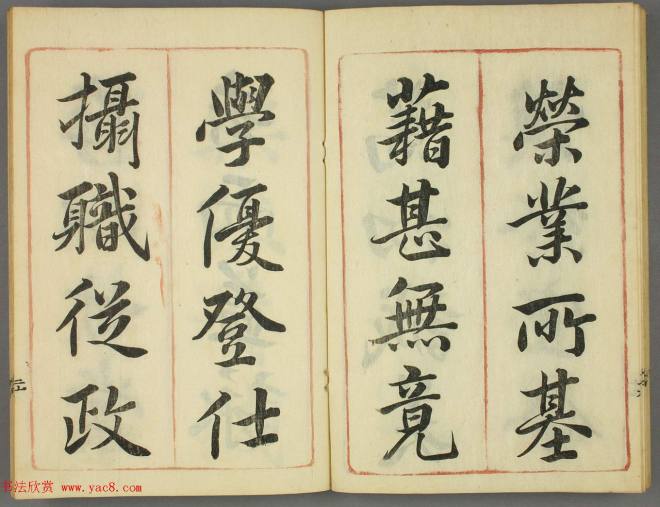 榮業所基
藉甚無竟
學優登仕
攝職從政
书法欣赏 www.yac8.com